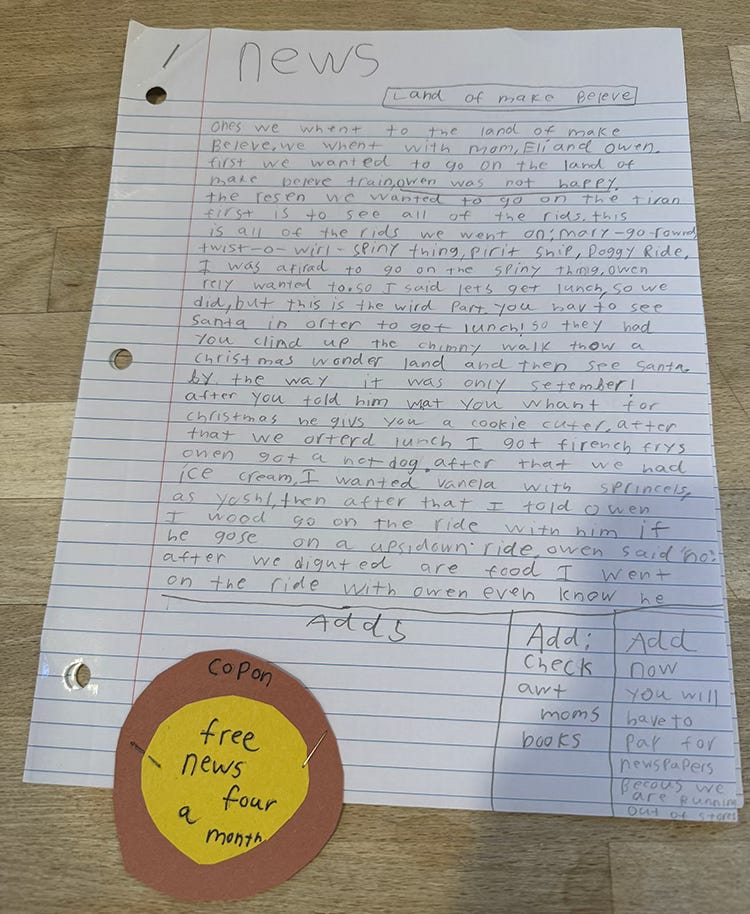 1
news
Land of make Beleve
ones we whent to the land of make
Beleve, we whent with mom, Eli and owen.
first we wanted to go on the land of
make beleve train, owen was not happy.
the resen we wanted to go on the tiran
first is to see all of the rids. this
is all of the rids we went on; mary-go-round,
twist-o-wirl-spiny thing, pirit ship, Doggy Ride,
I was afirad to go on the spiny thing, owen
rely wanted to. so I said lets get lunch, so we
did, but this is the wird part. you hav to see
Santa in orter to get lunch! so they had
you clind up the chimny walk thow a
christmas wonder land and then see santa.
by the way it was only setember!
after you told him wat you whant for
christmas he givs you a cookie cuter, after
that we orterd lunch I got firench frys
owen got a hotdog. after that we had
ice cream, I wanted vanela with sprincels,
as yoshl, then after that I told owen
I wood go on the ride with him if
he gose on a upsidown ride, owen said "no"
after we dignted are food I went
on the ride with owen even know he
Adds
Add:
check
awt
moms
books
Add
now
you will
have to
pay for
newspapers
Becous we
are running
out of stores
copon
free
news
four
a
month